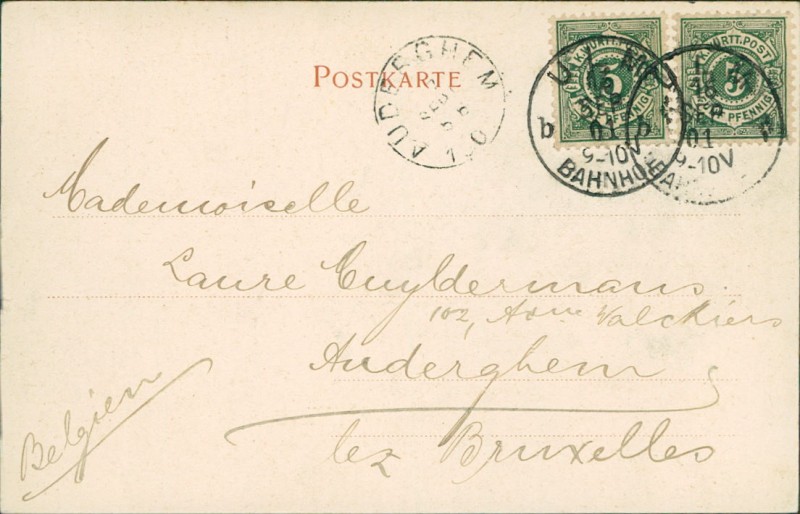 POSTKARTE
AUDERGHEM
K. WÜRTT. POST
5
PFENNIG
K. WÜRTT. POST
5
PFENNIG
ULM
16
SEP
01
9-10V
b b
BAHNHOF
ULM
16
SEP
01
9-10V
Mademoiselle
Laure Cuyldermans
102, Aᵛᵉⁿᵘᵉ Valckiers
Auderghem
lez Bruxelles
Belgien